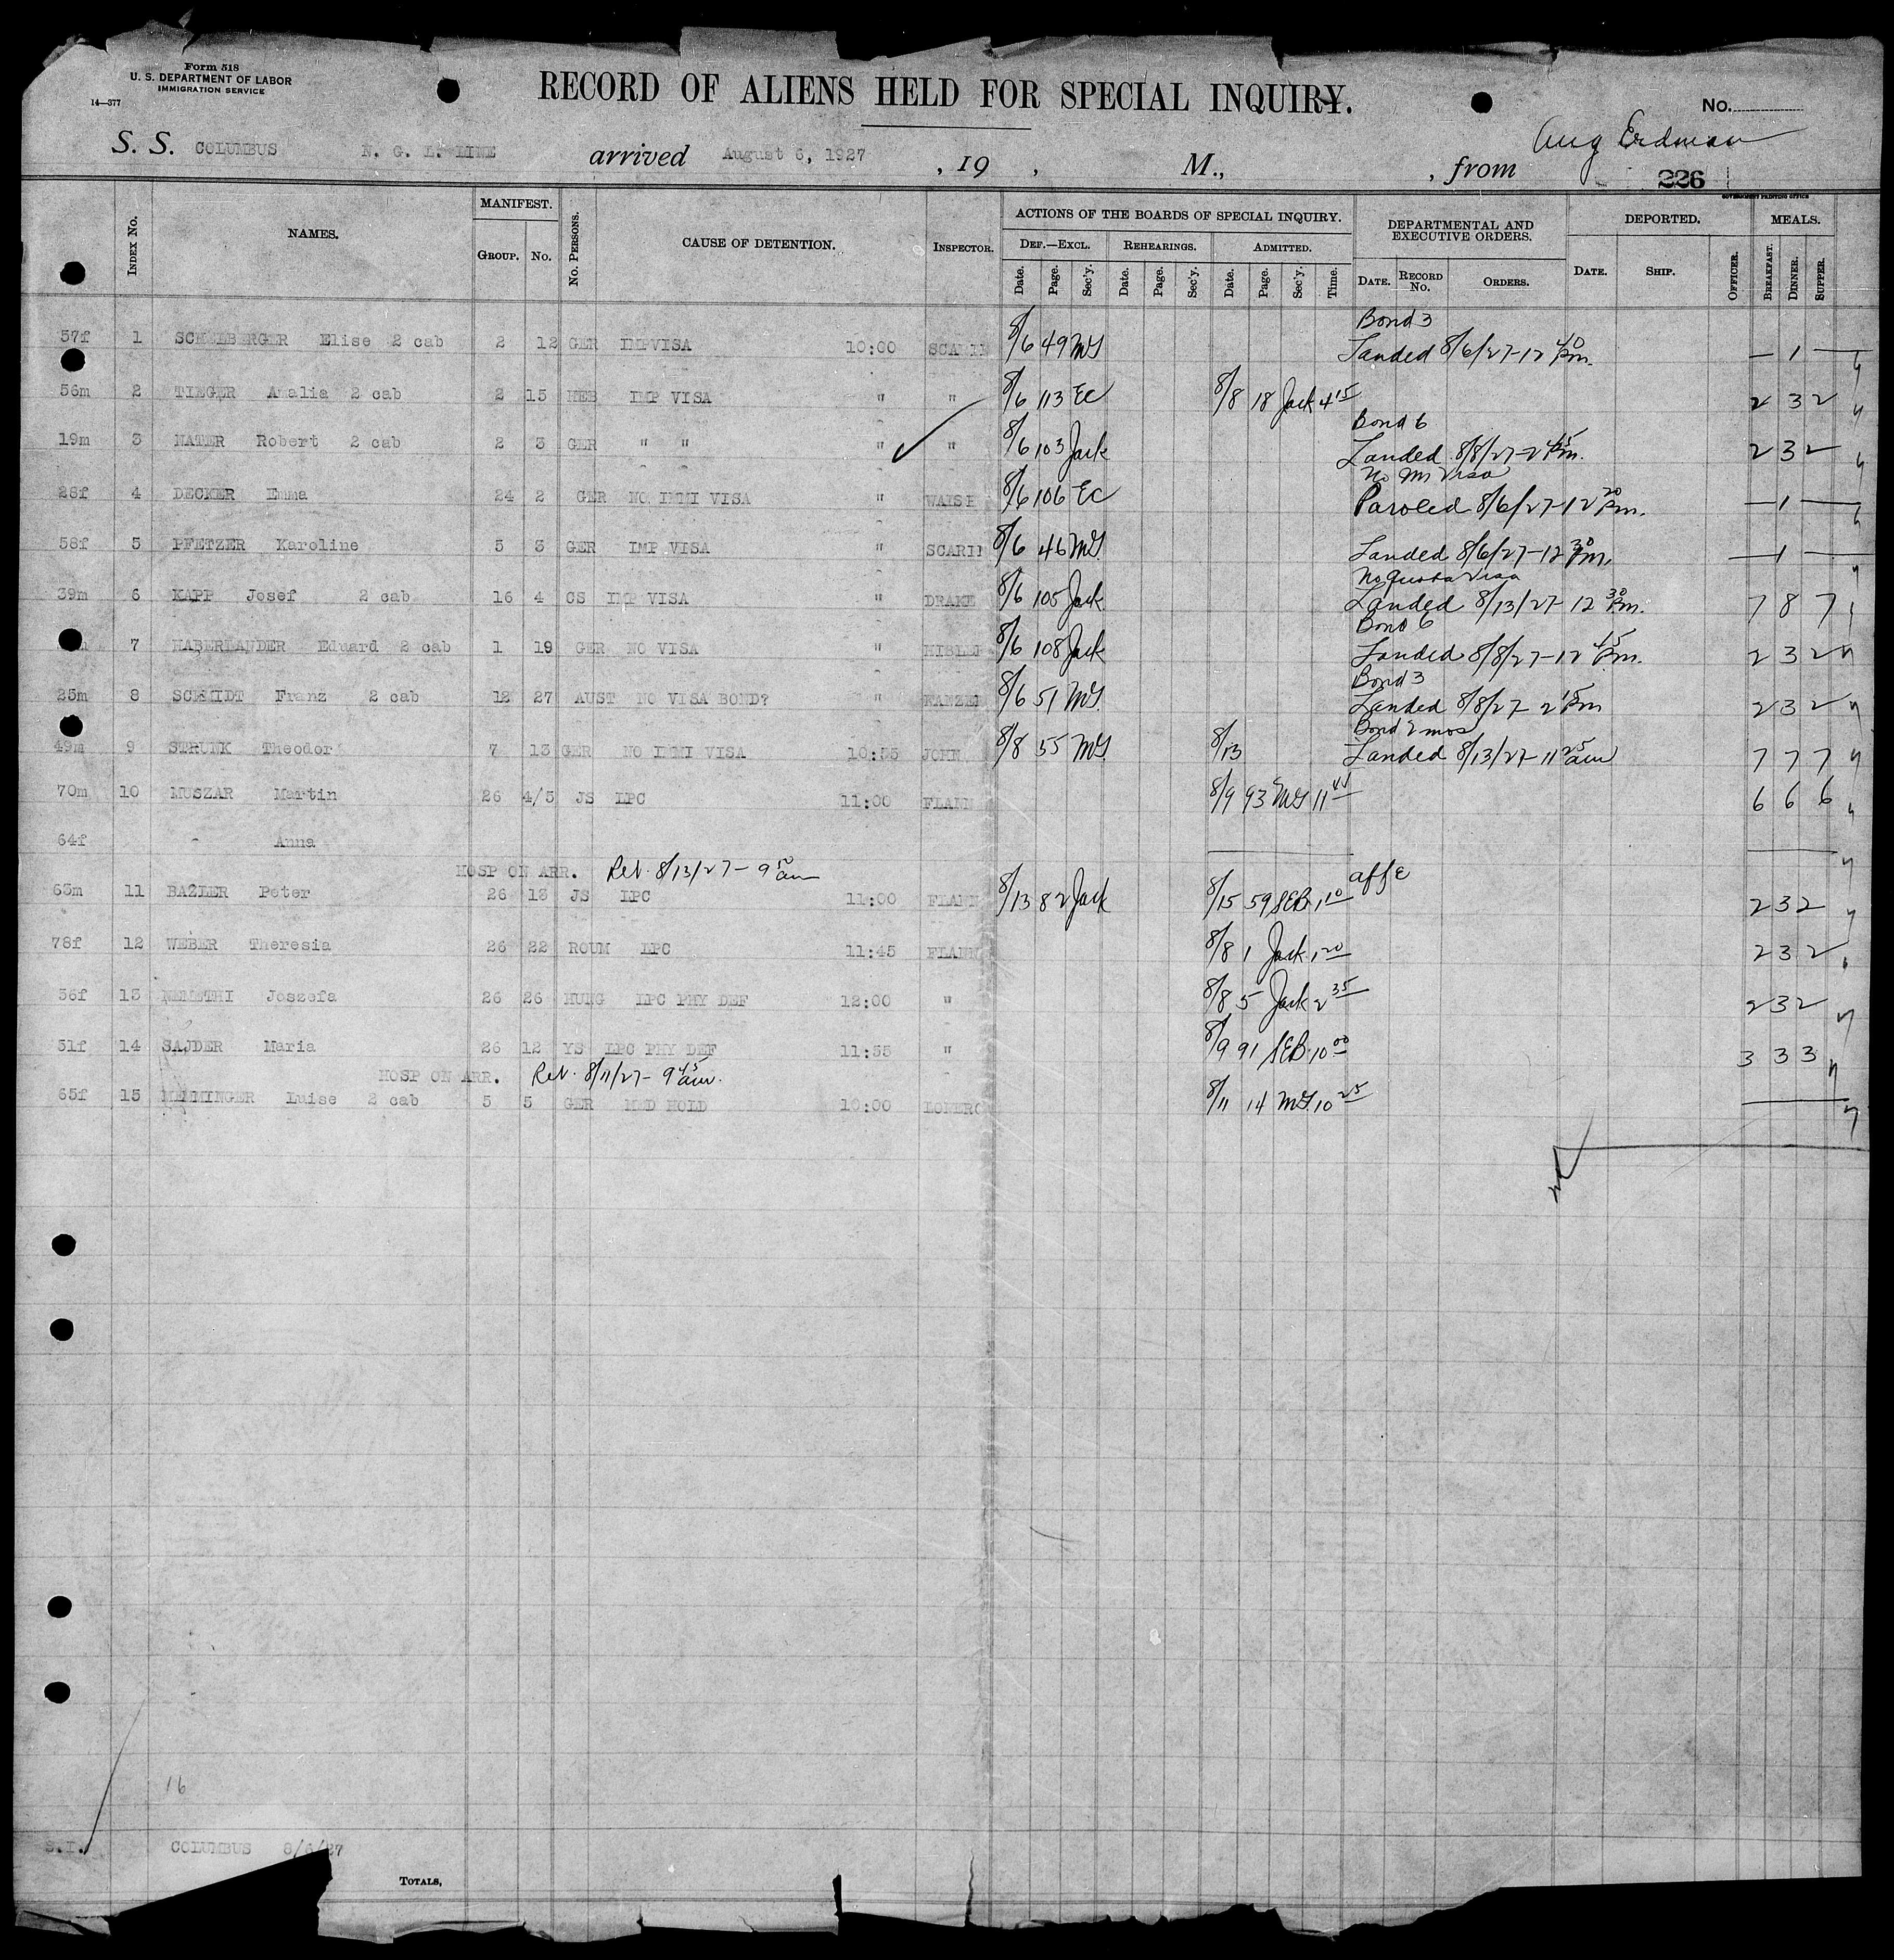 Form 518
U. S. DEPARTMENT OF LABOR
IMMIGRATION SERVICE
14—377
RECORD OF ALIENS HELD FOR SPECIAL INQUIRY.
No.
S. S. COLUMBUS N. G. L. LINE arrived August 6, 1927 , 19 , M., , from Aug Erdman
226
GOVERNMENT PRINTING OFFICE
INDEX NO. NAMES. MANIFEST. GROUP. NO. NO. PERSONS. CAUSE OF DETENTION. INSPECTOR. ACTIONS OF THE BOARDS OF SPECIAL INQUIRY. DEPARTMENTAL AND EXECUTIVE ORDERS. DEPORTED. MEALS.
DEF.—EXCL. REHEARINGS. ADMITTED.
Date. Page. Sec'y. Date. Page. Sec'y. Date. Page. Sec'y. Time. DATE. RECORD No. ORDERS. DATE. SHIP. OFFICER. BREAKFAST. DINNER. SUPPER.
Bond 3
57f 1 Elise 2 cab 2 12 GER IMPVISA 10:00 8/6 49 MG Landed 8/6/27-12 40 Pm. — 1 —
56m 2 TIEGER Amalie 2 cab 2 15 HEB IMP VISA " " 8/6 113 EC 8/8 18 Jack 4 15 2 3 2
Bond 6
19m 3 NATER Robert 2 cab 2 3 GER " " " " 8/6 103 Jack Landed 8/8/27-2 45 Pm. 2 3 2
No Im Visa
28f 4 DECKER Emma 24 2 GER NO IMMI VISA " 8/6 106 EC Paroled 8/6/27-12 20 Pm. — 1 —
58f 5 PFETZER Karoline 5 3 GER IMP VISA " 8/6 46 MG Landed 8/6/27-12 30 Pm. — 1 —
No Quota Visa
39m 6 KAPP Josef 2 cab 16 4 CS IMP VISA " DRAKE 8/6 105 Jack Landed 8/13/27-12 30 Pm. 7 8 7
Bond 6
7 HABERLANDER Eduard 2 cab 1 19 GER NO VISA " 8/6 108 Jack Landed 8/8/27-12 45 Pm. 2 3 2
Bond 3
25m 8 SCHMIDT Franz 2 cab 12 27 AUST NO VISA BOND? " 8/6 51 MG Landed 8/8/27-2 15 Pm 2 3 2
Bond 2 mos
49m 9 STRUNK Theodor 7 13 GER NO IMMI VISA 10:55 JOHN 8/8 55 MG 8/13 Landed 8/13/27-11 25 am 7 7 7
70m 10 MUSZAR Martin 26 4/5 JS LPC 11:00 FLANN 8/9 93 MG 11 6 6 6
64f " Anna
HOSP ON ARR. Rel. 8/13/27-9 50 am affe
63m 11 Peter 26 13 JS LPC 11:00 FLANN 8/13 82 Jack 8/15 59 SEB 1 10 2 3 2
78f 12 WEBER Theresia 26 22 ROUM LPC 11:45 FLANN 8/8 1 Jack 1 20 2 3 2
56f 13 NEMETHI Joszefa 26 26 HUNG LPC PHY DEF 12:00 " 8/8 5 Jack 2 35 2 3 2
51f 14 SAJDER Maria 26 12 YS LPC PHY DEF 11:55 " 8/9 91 SEB 10 00 3 3 3
HOSP ON ARR. Rel. 8/11/27-9 45 am.
65f 15 MEMMINGER Luise 2 cab 5 5 GER MED HOLD 10:00 8/11 14 MG 10 25
16
S.I. COLUMBUS 8/6/27
TOTALS,